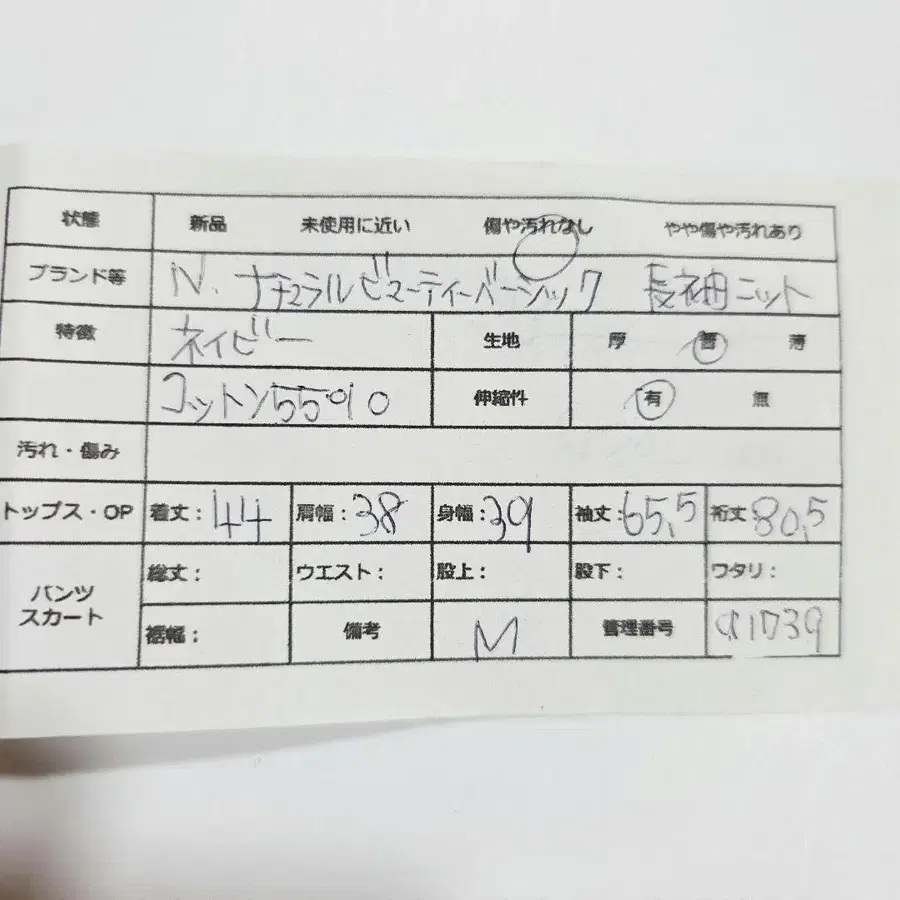 状態 新品 未使用に近い 傷や汚れなし やや傷や汚れあり
ブランド等 N. ナチュラルビューティーベーシック 長袖ニット
特徴 ネイビー 生地 厚 普 薄
コットン55% 伸縮性 有 無
汚れ・傷み
トップス・OP 着丈：44 肩幅：38 身幅：39 袖丈：65.5 裄丈：80.5
パンツ スカート 総丈： ウエスト： 股上： 股下： ワタリ：
裾幅： 備考 M 管理番号